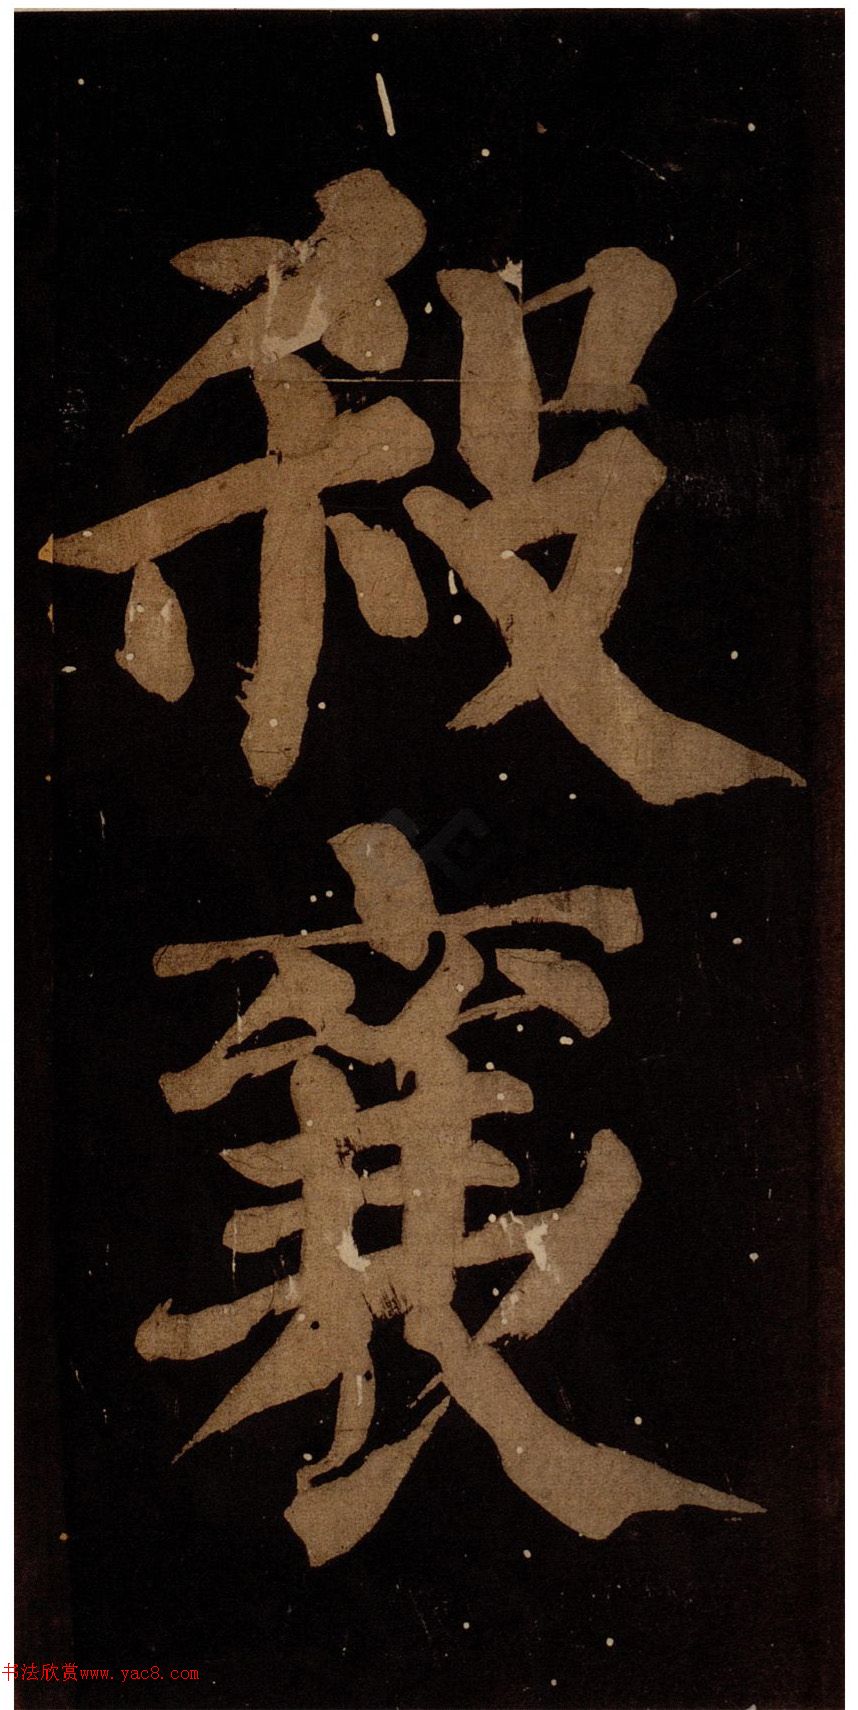 殺
襄
书法欣赏www.yac8.com